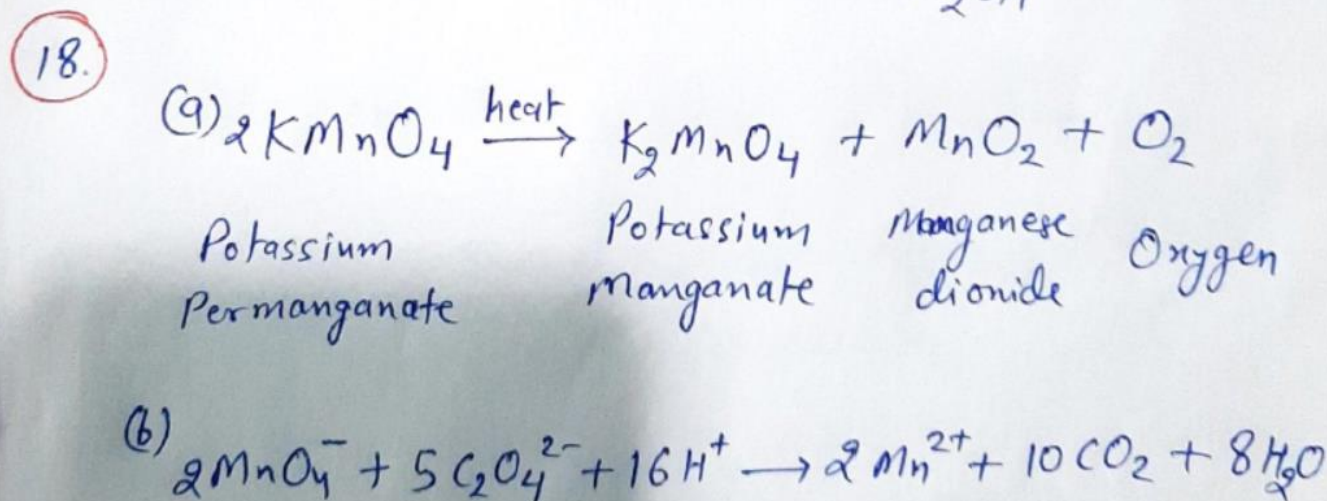 18.
(a) 2KMnO₄ heat → K₂MnO₄ + MnO₂ + O₂
Potassium Permanganate Potassium manganate Manganese dioxide Oxygen
(b) 2MnO₄⁻ + 5C₂O₄²⁻ + 16H⁺ → 2Mn²⁺ + 10CO₂ + 8H₂O